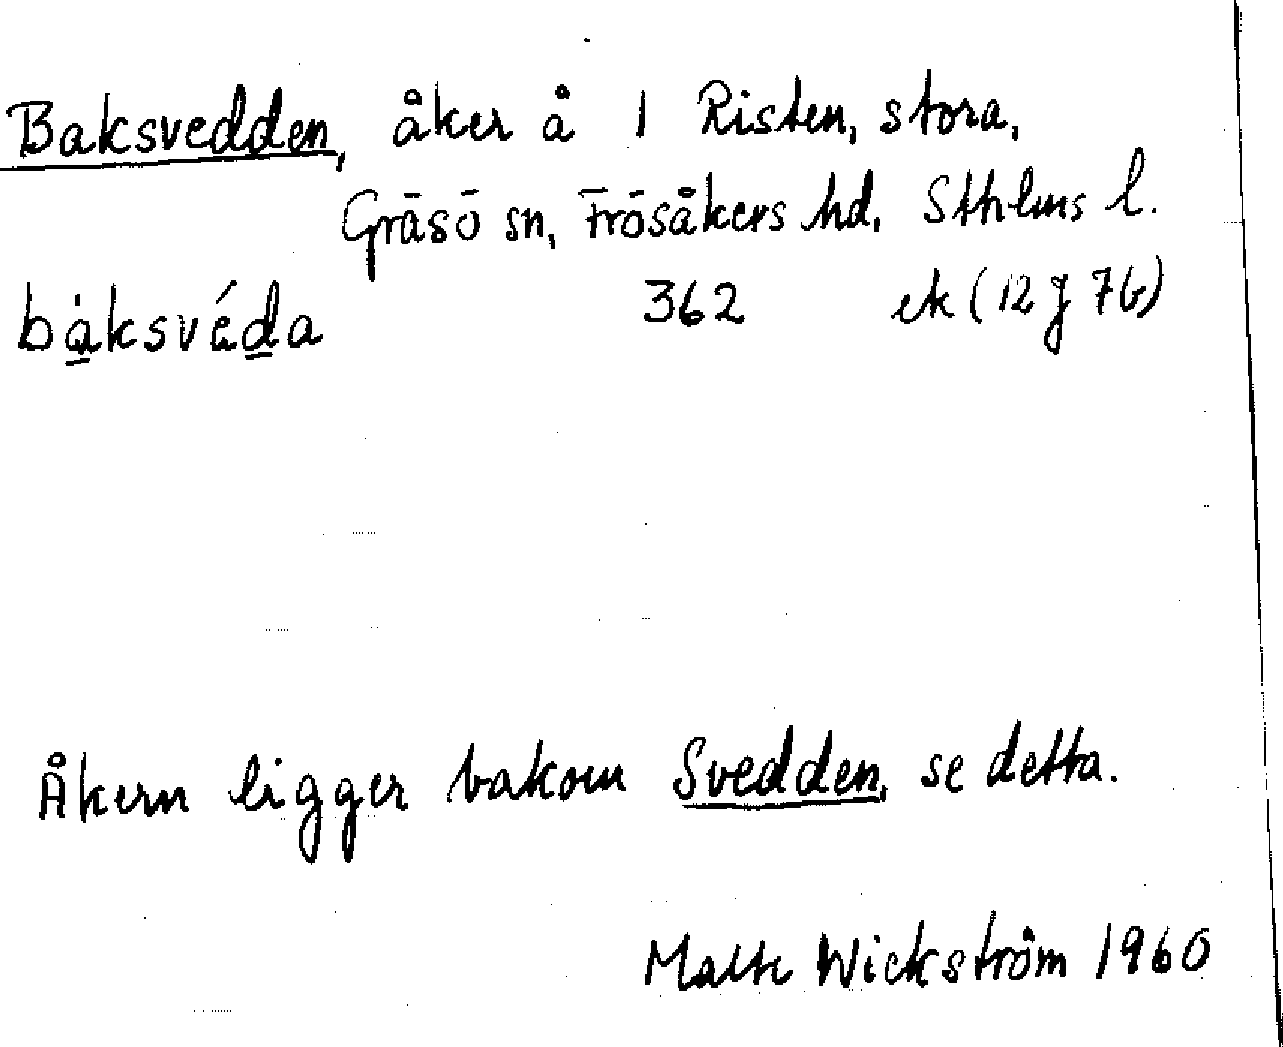 Baksvedden, åker å 1 Risten, stora,
Gräsö sn, Frösåkers hd, Sthlms l.
bȧ̱ksvéḏa 362 ek (12 g 7b)
Åkern ligger bakom Svedden, se detta.
Malte Wickström 1960